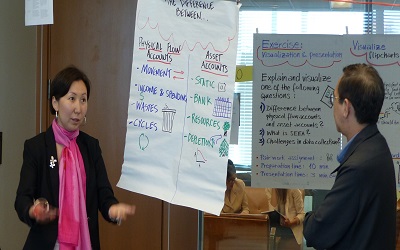 THE DIFFERENCE
BETWEEN
PHYSICAL FLOW
ACCOUNTS
- MOVEMENT
- INCOME & SPENDING
- WASTES
- CYCLES
ASSET
ACCOUNTS
- STATIC
- BANK
- RESOURCES
Exercise:
Visualization & presentation
Explain and visualize
one of the following
questions:
1) Difference between
physical flow accounts
and asset accounts?
2) What is SEEA?
3) Challenges in data collection?
Pair work assignment:
Preparation time: 10 min.
Presentation time: 3 min
Visualize
flipcharts